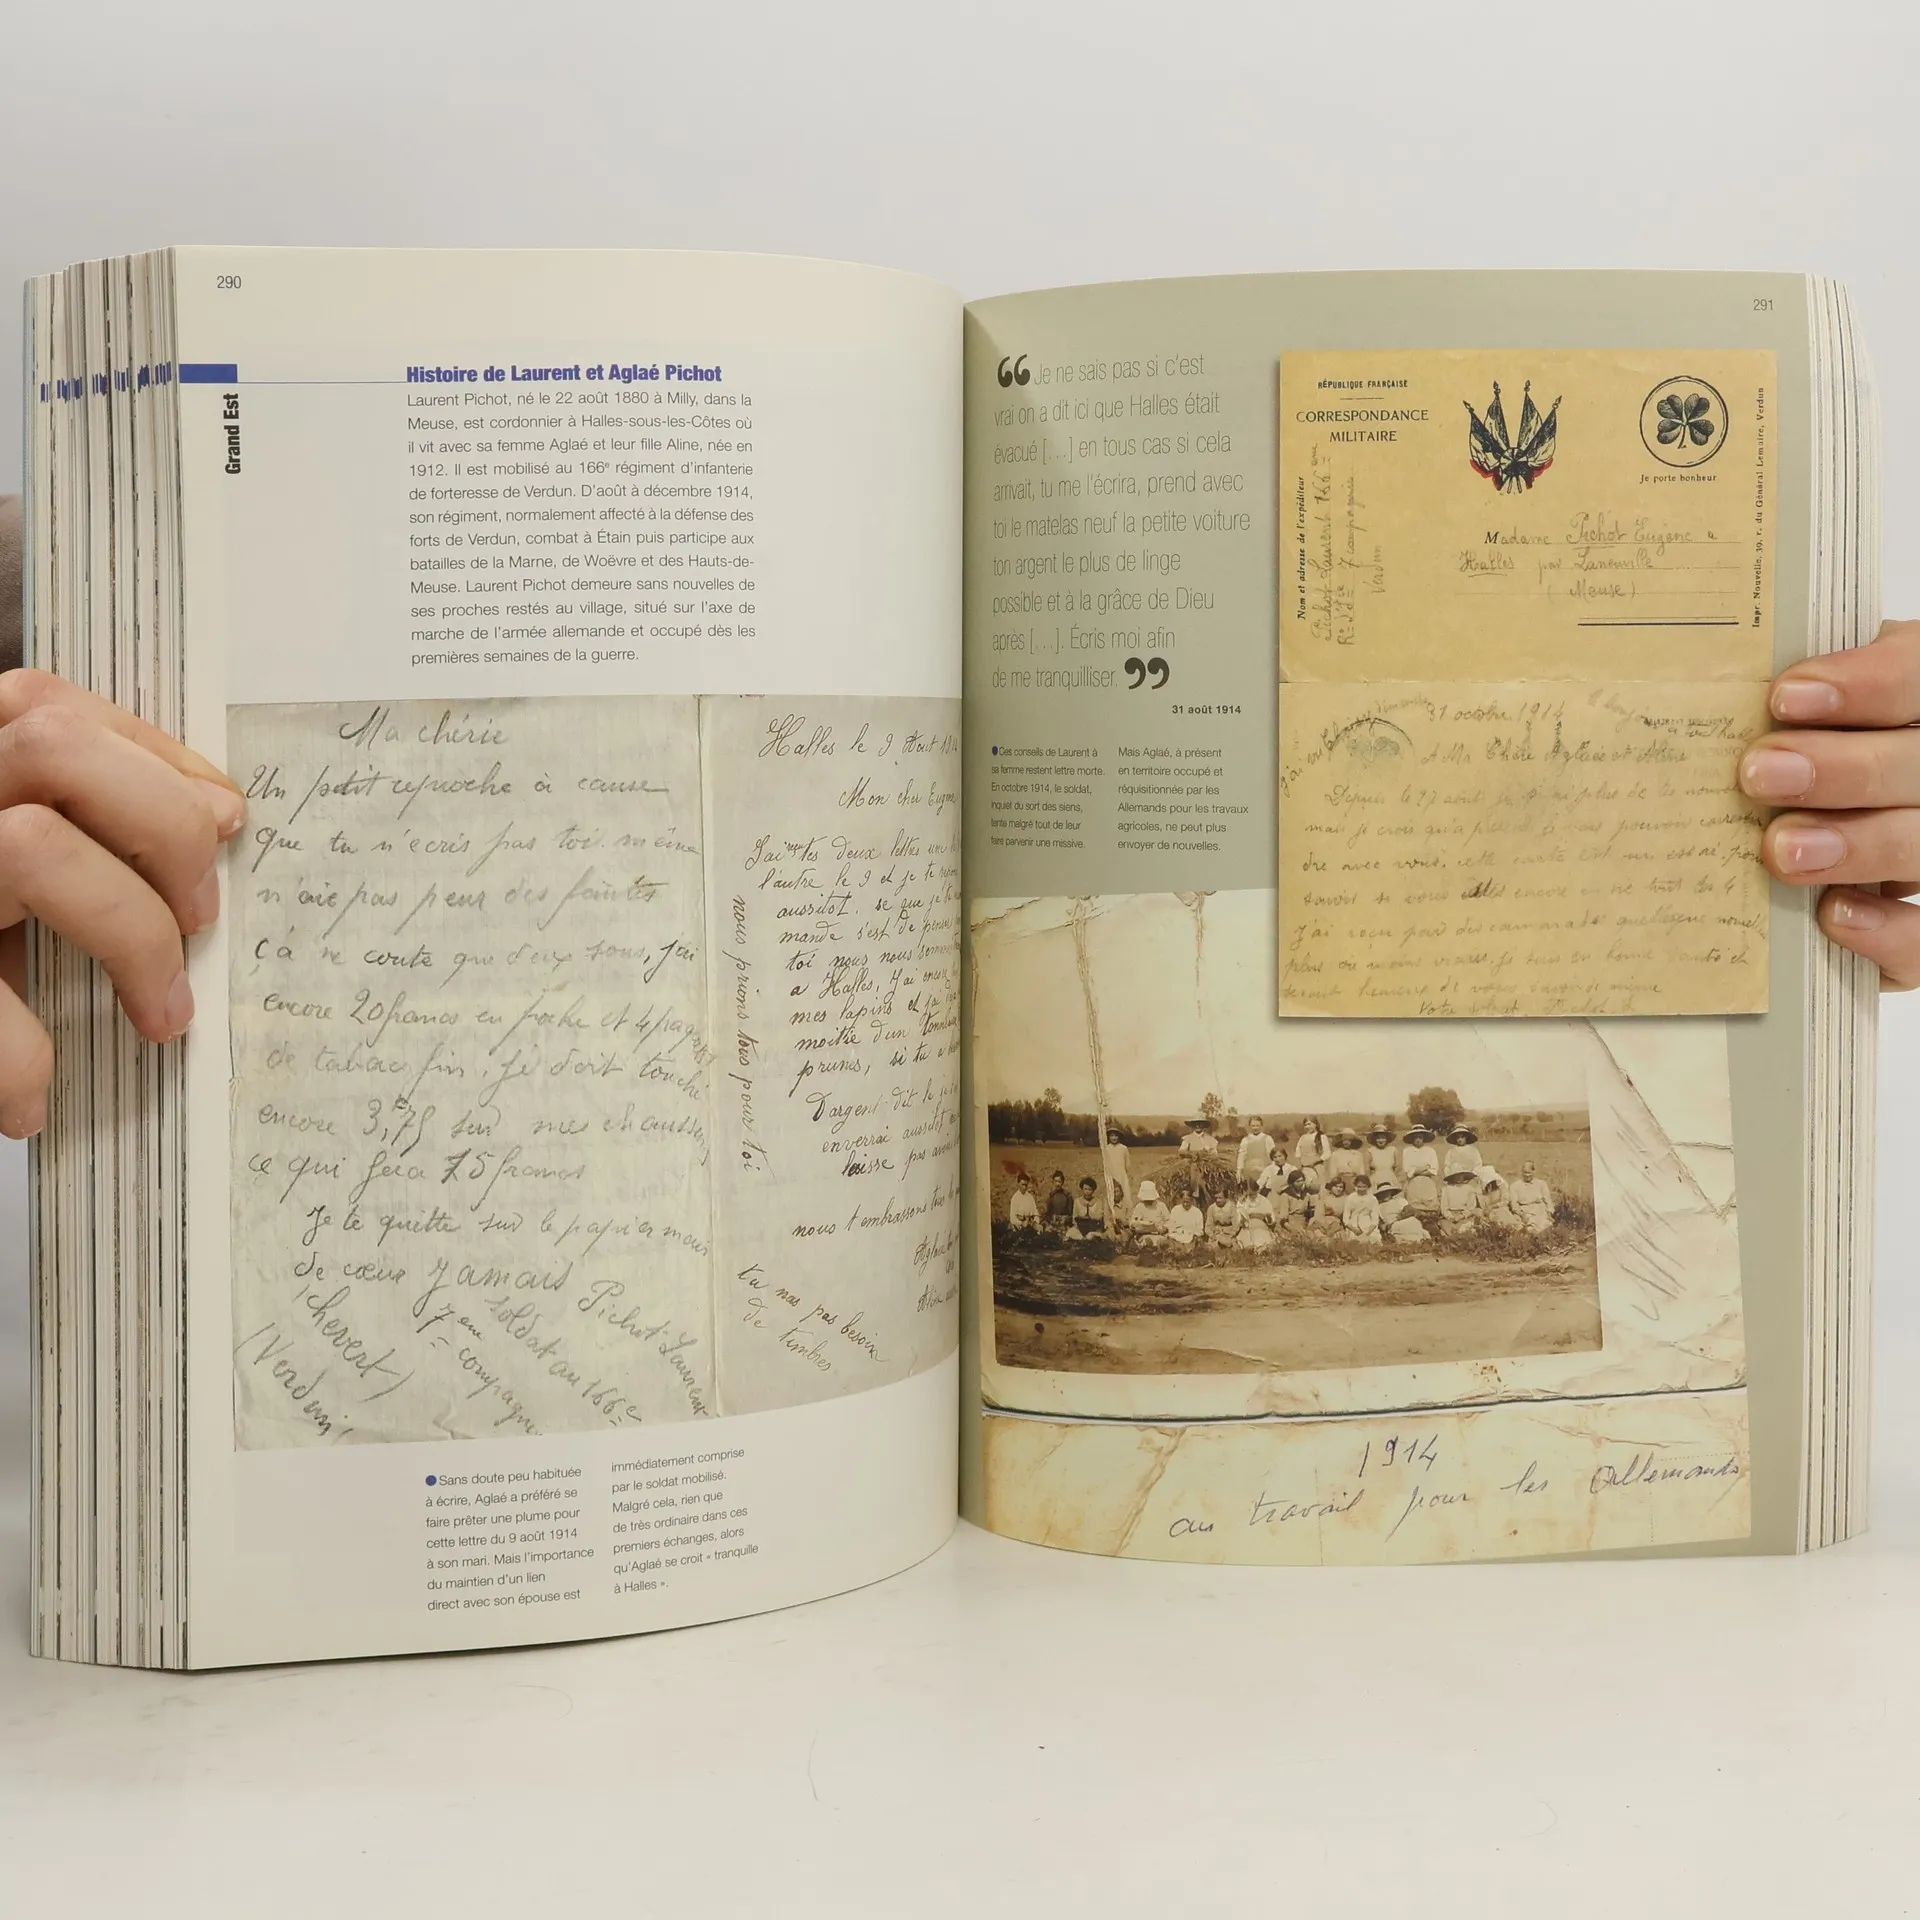 290
Grand Est
Histoire de Laurent et Aglaé Pichot
Laurent Pichot, né le 22 août 1880 à Milly, dans la
Meuse, est cordonnier à Halles-sous-les-Côtes où
il vit avec sa femme Aglaé et leur fille Aline, née en
1912. Il est mobilisé au 166e régiment d'infanterie
de forteresse de Verdun. D'août à décembre 1914,
son régiment, normalement affecté à la défense des
forts de Verdun, combat à Étain puis participe aux
batailles de la Marne, de Woëvre et des Hauts-de-
Meuse. Laurent Pichot demeure sans nouvelles de
ses proches restés au village, situé sur l'axe de
marche de l'armée allemande et occupé dès les
premières semaines de la guerre.
Ma chérie
Un petit reproche à cause
que tu n'écris pas toi même
n'aie pas peur des fautes
ça ne coute que deux sous, j'ai
encore 20 francs en poche et 4 paquets
de tabac fin. Je doit touché
encore 3,75 sur mes chaussures
ce qui fera 75 francs
Je te quitte sur le papier mais
de cœur Jamais
Pichot Laurent
soldat au 166e
7eme compagnie
Chevert)
(Verdun
Halles le 9 Aout
Mon cher
J'ai reçu tes deux lettres
l'autre le 9 et je te
aussitot. se que je
mande s'est de
toi nous nous
a Halles, J'ai encore
mes lapins et j'ai
moitié d'un
prunes, si tu
D'argent dit le
enverrai aussitot
laisse pas
nous t'embrassons
nous prions tous pour toi
tu nas pas besoin
de timbres
Sans doute peu habituée
à écrire, Aglaé a préféré se
faire prêter une plume pour
cette lettre du 9 août 1914
à son mari. Mais l'importance
du maintien d'un lien
direct avec son épouse est
immédiatement comprise
par le soldat mobilisé.
Malgré cela, rien que
de très ordinaire dans ces
premiers échanges, alors
qu'Aglaé se croit « tranquille
à Halles ».
291
“ Je ne sais pas si c'est
vrai on a dit ici que Halles était
évacué [...] en tous cas si cela
arrivait, tu me l'écrira, prend avec
toi le matelas neuf la petite voiture
ton argent le plus de linge
possible et à la grâce de Dieu
après [...]. Écris moi afin
de me tranquilliser. ”
31 août 1914
Ces conseils de Laurent à
sa femme restent lettre morte.
En octobre 1914, le soldat,
inquiet du sort des siens,
tente malgré tout de leur
faire parvenir une missive.
Mais Aglaé, à présent
en territoire occupé et
réquisitionnée par les
Allemands pour les travaux
agricoles, ne peut plus
envoyer de nouvelles.
RÉPUBLIQUE FRANÇAISE
CORRESPONDANCE
MILITAIRE
Je porte bonheur
Nom et adresse de l'expéditeur
Pichot Laurent 166eme
7 compagnie
Verdun
Madame Pichot Eugène a
Halles par Laneuville
(Meuse)
Impr. Nouvelle, 39, r. du Général Lemaire, Verdun
31 octobre 1914
A Ma Chère Aglaée et Aline
Depuis le 27 je plus de
mais je crois qu'a présent
dre avec vous. cette carte est un essai pour
savoir si vous encore en vie tout les 4
J'ai reçu par des camarades quelques
plus ou moins vraies. Je suis en bonne santé et
heureux de vous savoir de même
1914
au travail pour les Allemands